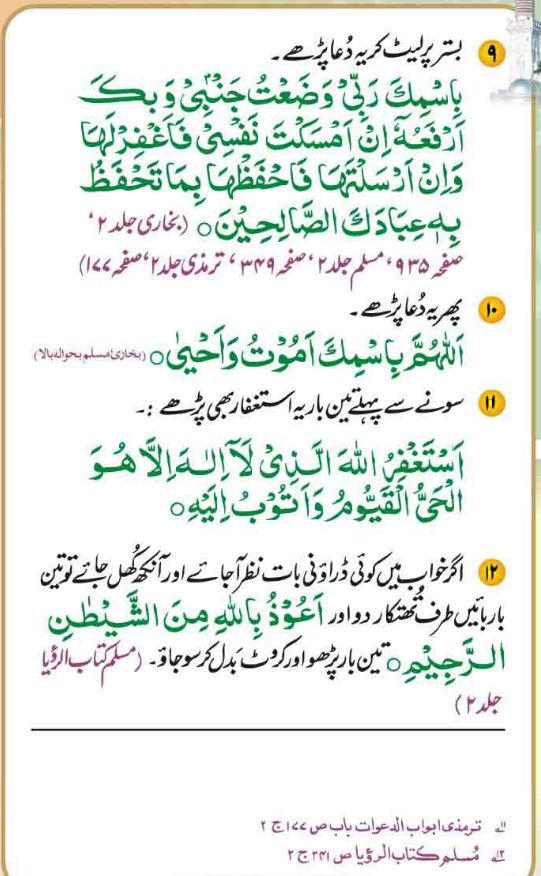 ۹ بستر پر لیٹ کر یہ دُعا پڑھے۔
بِاسْمِكَ رَبِّیْ وَضَعْتُ جَنْبِیْ وَبِكَ
اَرْفَعُهٗٓ اِنْ اَمْسَكْتَ نَفْسِیْ فَاغْفِرْلَهَا
وَاِنْ اَرْسَلْتَهَا فَاحْفَظْهَا بِمَا تَحْفَظُ
بِهٖ عِبَادَكَ الصَّالِحِیْنَ○ (بخاری جلد ۲،
صفحہ ۹۳۵، مسلم جلد ۲، صفحہ ۳۴۹، ترمذی جلد ۲، صفحہ ۱۷۷)
۱۰ پھر یہ دُعا پڑھے۔
اَللّٰهُمَّ بِاسْمِكَ اَمُوْتُ وَاَحْیٰی○ (بخاری، مسلم بحوالہ بالا)
۱۱ سونے سے پہلے تین بار یہ استغفار بھی پڑھے :۔
اَسْتَغْفِرُ اللّٰهَ الَّذِیْ لَآ اِلٰهَ اِلَّا هُوَ
الْحَیُّ الْقَیُّوْمُ وَاَتُوْبُ اِلَیْهِ○
۱۲ اگر خواب میں کوئی ڈراؤنی بات نظر آجائے اور آنکھ کُھل جائے تو تین
بار بائیں طرف تُھتکار دو اور اَعُوْذُ بِاللّٰهِ مِنَ الشَّیْطٰنِ
الرَّجِیْمِ○ تین بار پڑھو اور کروٹ بدل کر سو جاؤ۔ (مسلم کتاب الرؤیا
جلد ۲)
لے ترمذی ابواب الدعوات باب ص ۱۷۷ ج ۲
۲ے مُسلم کتاب الرؤیا ص ۲۴۱ ج ۲